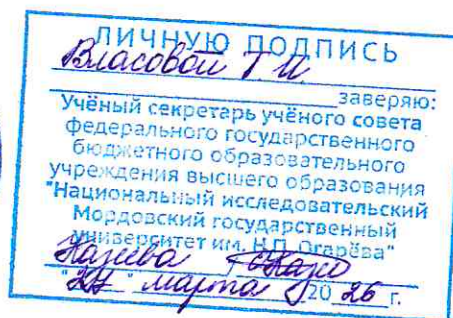 ЛИЧНУЮ ПОДПИСЬ
Власовой Т И
заверяю:
Учёный секретарь учёного совета
федерального государственного
бюджетного образовательного
учреждения высшего образования
"Национальный исследовательский
Мордовский государственный
университет им. Н.П. Огарёва"
" марта 20 26 г.